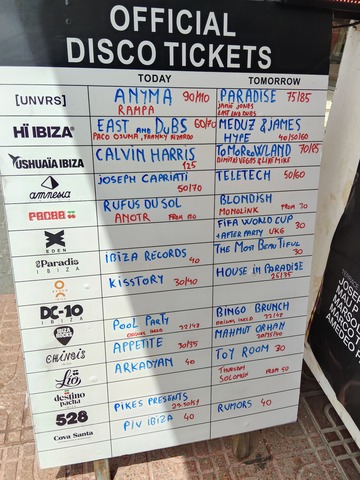 OFFICIAL
DISCO TICKETS
TODAY TOMORROW
[UNVRS] ANYMA 90/110 PARADISE 75/85
RAMPA JAMIE JONES
HÏ IBIZA EAST AND DUBS 60/70 MEDUZ & JAMES
PACO OSUNA, FRANKY RIZARDO HYPE 40/50/60
USHUAÏA IBIZA CALVIN HARRIS ToMoRRoWLAND 70/85
125 DIMITRI VEGAS & LIKE MIKE
amnesia JOSEPH CAPRIATI TELETECH 50/60
50/70
PACHA RUFUS DU SOL BLONDISH
ANOTR FROM MONOLINK FROM 70
EDEN FIFA WORLD CUP
+ AFTER PARTY UKG 30
esParadis IBIZA RECORDS 40 The MOST BEAUTIFUL
IBIZA 30
KISSTORY 30/40 HOUSE IN PARADISE
25/35
DC-10 BINGO BRUNCH
IBIZA POOL PARTY DRINKS INCLD
IBIZA ROCKS MAHMUT ORHAN
CHINOIS APPETITE 30/35
Lío ARKADYAN 40 TOY ROOM 30
destino THURSDAY
pacha SOLOMUN FROM 50
528 PIKES PRESENTS
Cova Santa PIV IBIZA 40 RUMORS 40
JOSEP